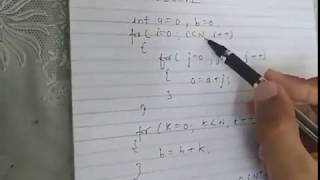 int a=0, b=0
for( i=0; i<N, i++)
{
for( j=0; j--)
{ a=a+j;
}
}
for (K=0; K<N,
{
b=b+K,
}